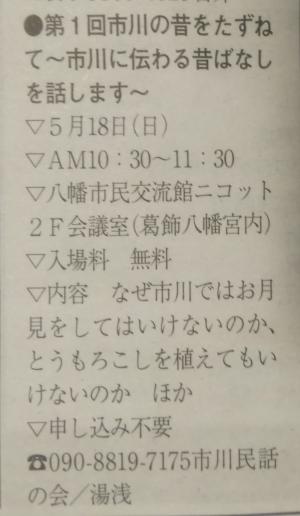 ●第1回市川の昔をたずね
て〜市川に伝わる昔ばなし
を話します〜
▽5月18日(日)
▽AM10：30〜11：30
▽八幡市民交流館ニコット
2F会議室(葛飾八幡宮内)
▽入場料　無料
▽内容　なぜ市川ではお月
見をしてはいけないのか、
とうもろこしを植えてもい
けないのか　ほか
▽申し込み不要
☎090-8819-7175市川民話
の会／湯浅